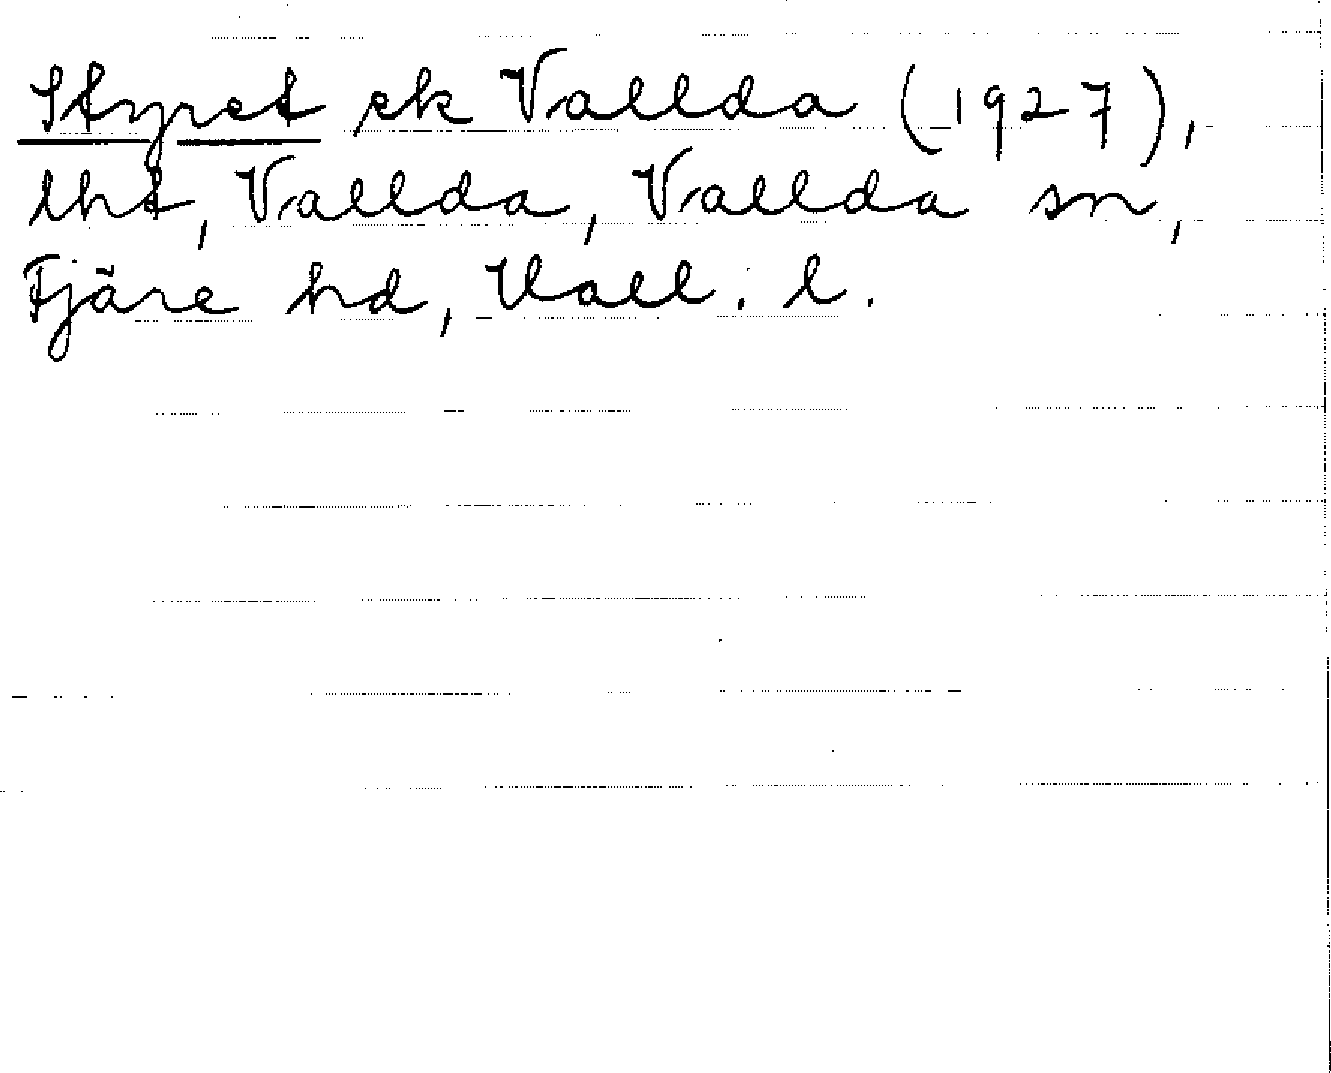 Styret ek Vallda (1927),
lht, Vallda, Vallda sn,
Fjäre hd, Hall. l.